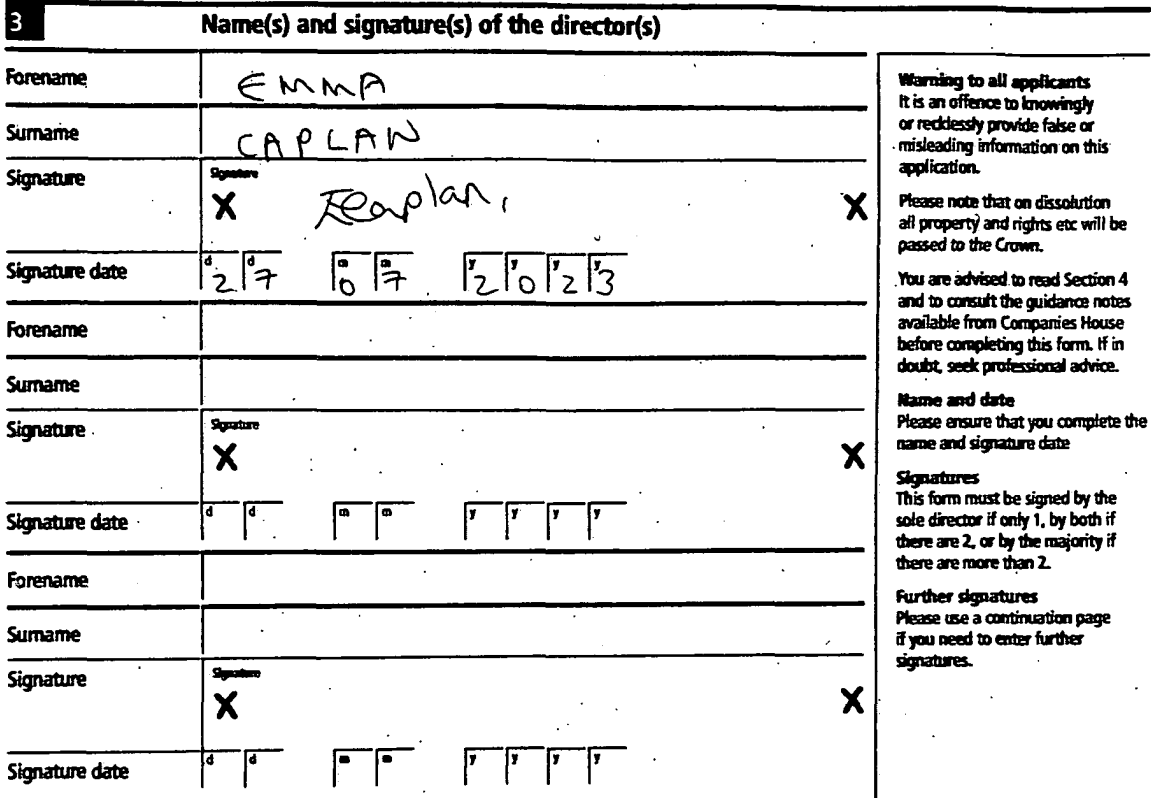 3 Name(s) and signature(s) of the director(s)
Forename EMMA
Surname CAPLAN
Signature Signature
X ECaplan, X
Signature date d 2 d 7 m 0 m 7 y 2 y 0 y 2 y 3
Forename
Surname
Signature Signature
X X
Signature date d d m m y y y y
Forename
Surname
Signature Signature
X X
Signature date d d m m y y y y
Warning to all applicants
It is an offence to knowingly
or recklessly provide false or
misleading information on this
application.
Please note that on dissolution
all property and rights etc will be
passed to the Crown.
You are advised to read Section 4
and to consult the guidance notes
available from Companies House
before completing this form. If in
doubt, seek professional advice.
Name and date
Please ensure that you complete the
name and signature date
Signatures
This form must be signed by the
sole director if only 1, by both if
there are 2, or by the majority if
there are more than 2.
Further signatures
Please use a continuation page
if you need to enter further
signatures.